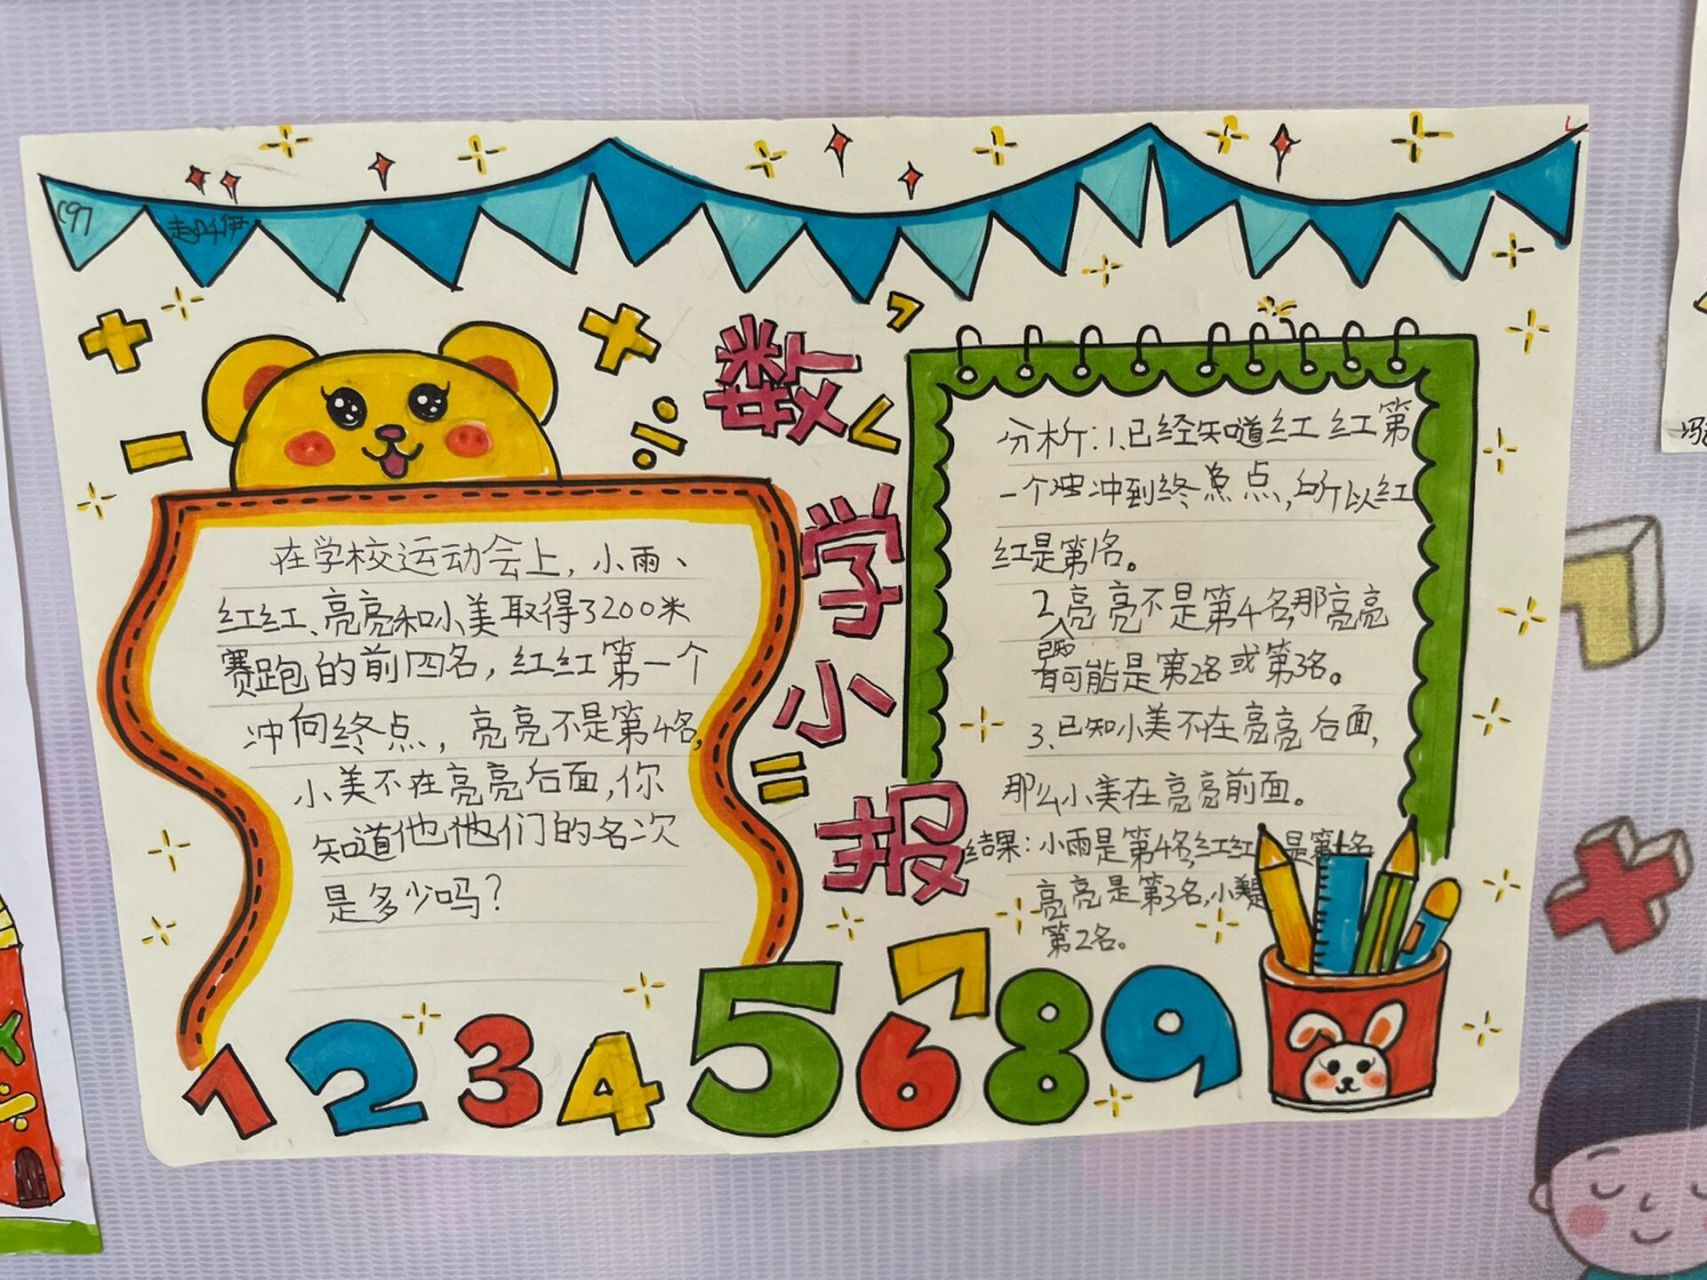 数学小报
在学校运动会上，小雨、
红红、亮亮和小美取得3200米
赛跑的前四名，红红第一个
冲向终点，亮亮不是第4名，
小美不在亮亮后面，你
知道他他们的名次
是多少吗？
分析：1.已经知道红红第
一个冲到终点，所以红
红是第1名。
2.亮亮不是第4名,那亮亮
有可能是第2名或第3名。
3.已知小美不在亮亮后面，
那么小美在亮亮前面。
结果：小雨是第4名,红红是第1名
亮亮是第3名,小美是
第2名。
1 2 3 4 5 6 7 8 9